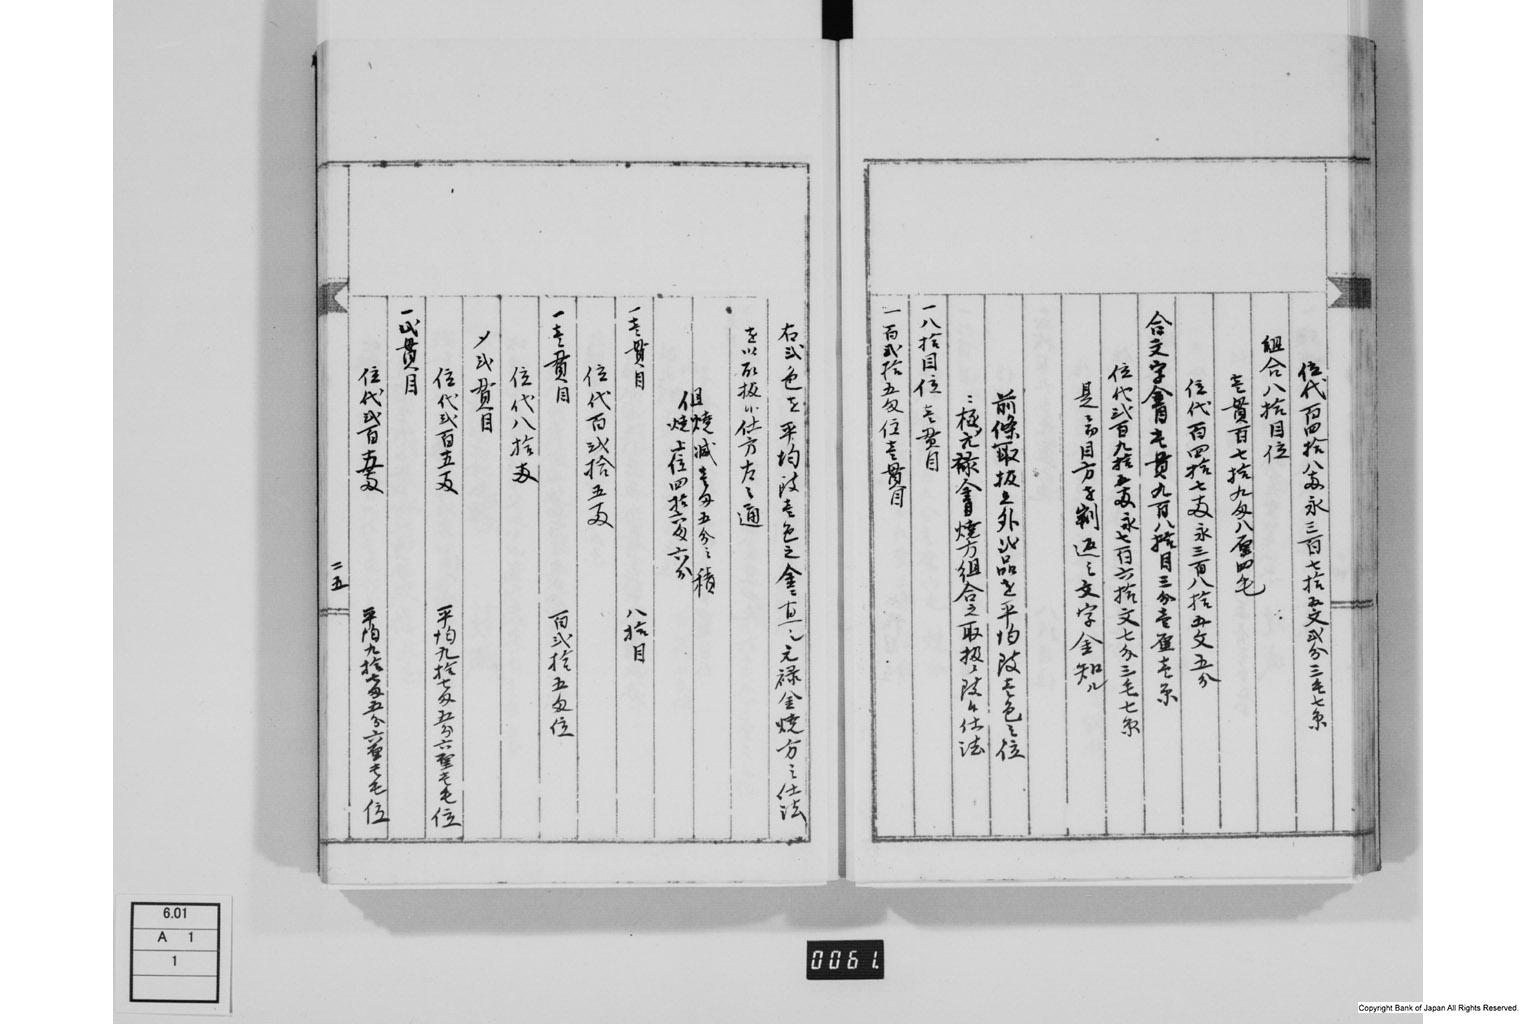 位代百四拾八両永三百七拾五文弐分三毛七糸
組合八拾目位
壱貫百七拾九匁八厘四毛
位代百四拾七両永三百八拾五文五分
合文字金目壱貫九百八拾目三分壱厘壱糸
位代弐百九拾五両永七百六拾文七分三毛七糸
是ニ而目方を割返シ文字金知ル
前條取扱之外此品を平均改壱色之位
ニ極元禄金目焼方組合之取扱ニ改候仕法
一八拾目位壱貫目
一百弐拾五匁位壱貫目
右弐色を平均改壱色之金ニ直シ元禄金焼方之仕法
を以取扱候仕方左之通
但焼減壱匁五分之積
焼上位四拾六匁六分
一壱貫目 八拾目
位代百弐拾五両
一壱貫目 百弐拾五匁位
位代八拾両
〆弐貫目
位代弐百五両 平均九拾七匁五分六厘壱毛位
一弐貫目
位代弐百五両 平均九拾七匁五分六厘壱毛位
二五
6.01
A 1
1
0061.
Copyright Bank of Japan All Rights Reserved.